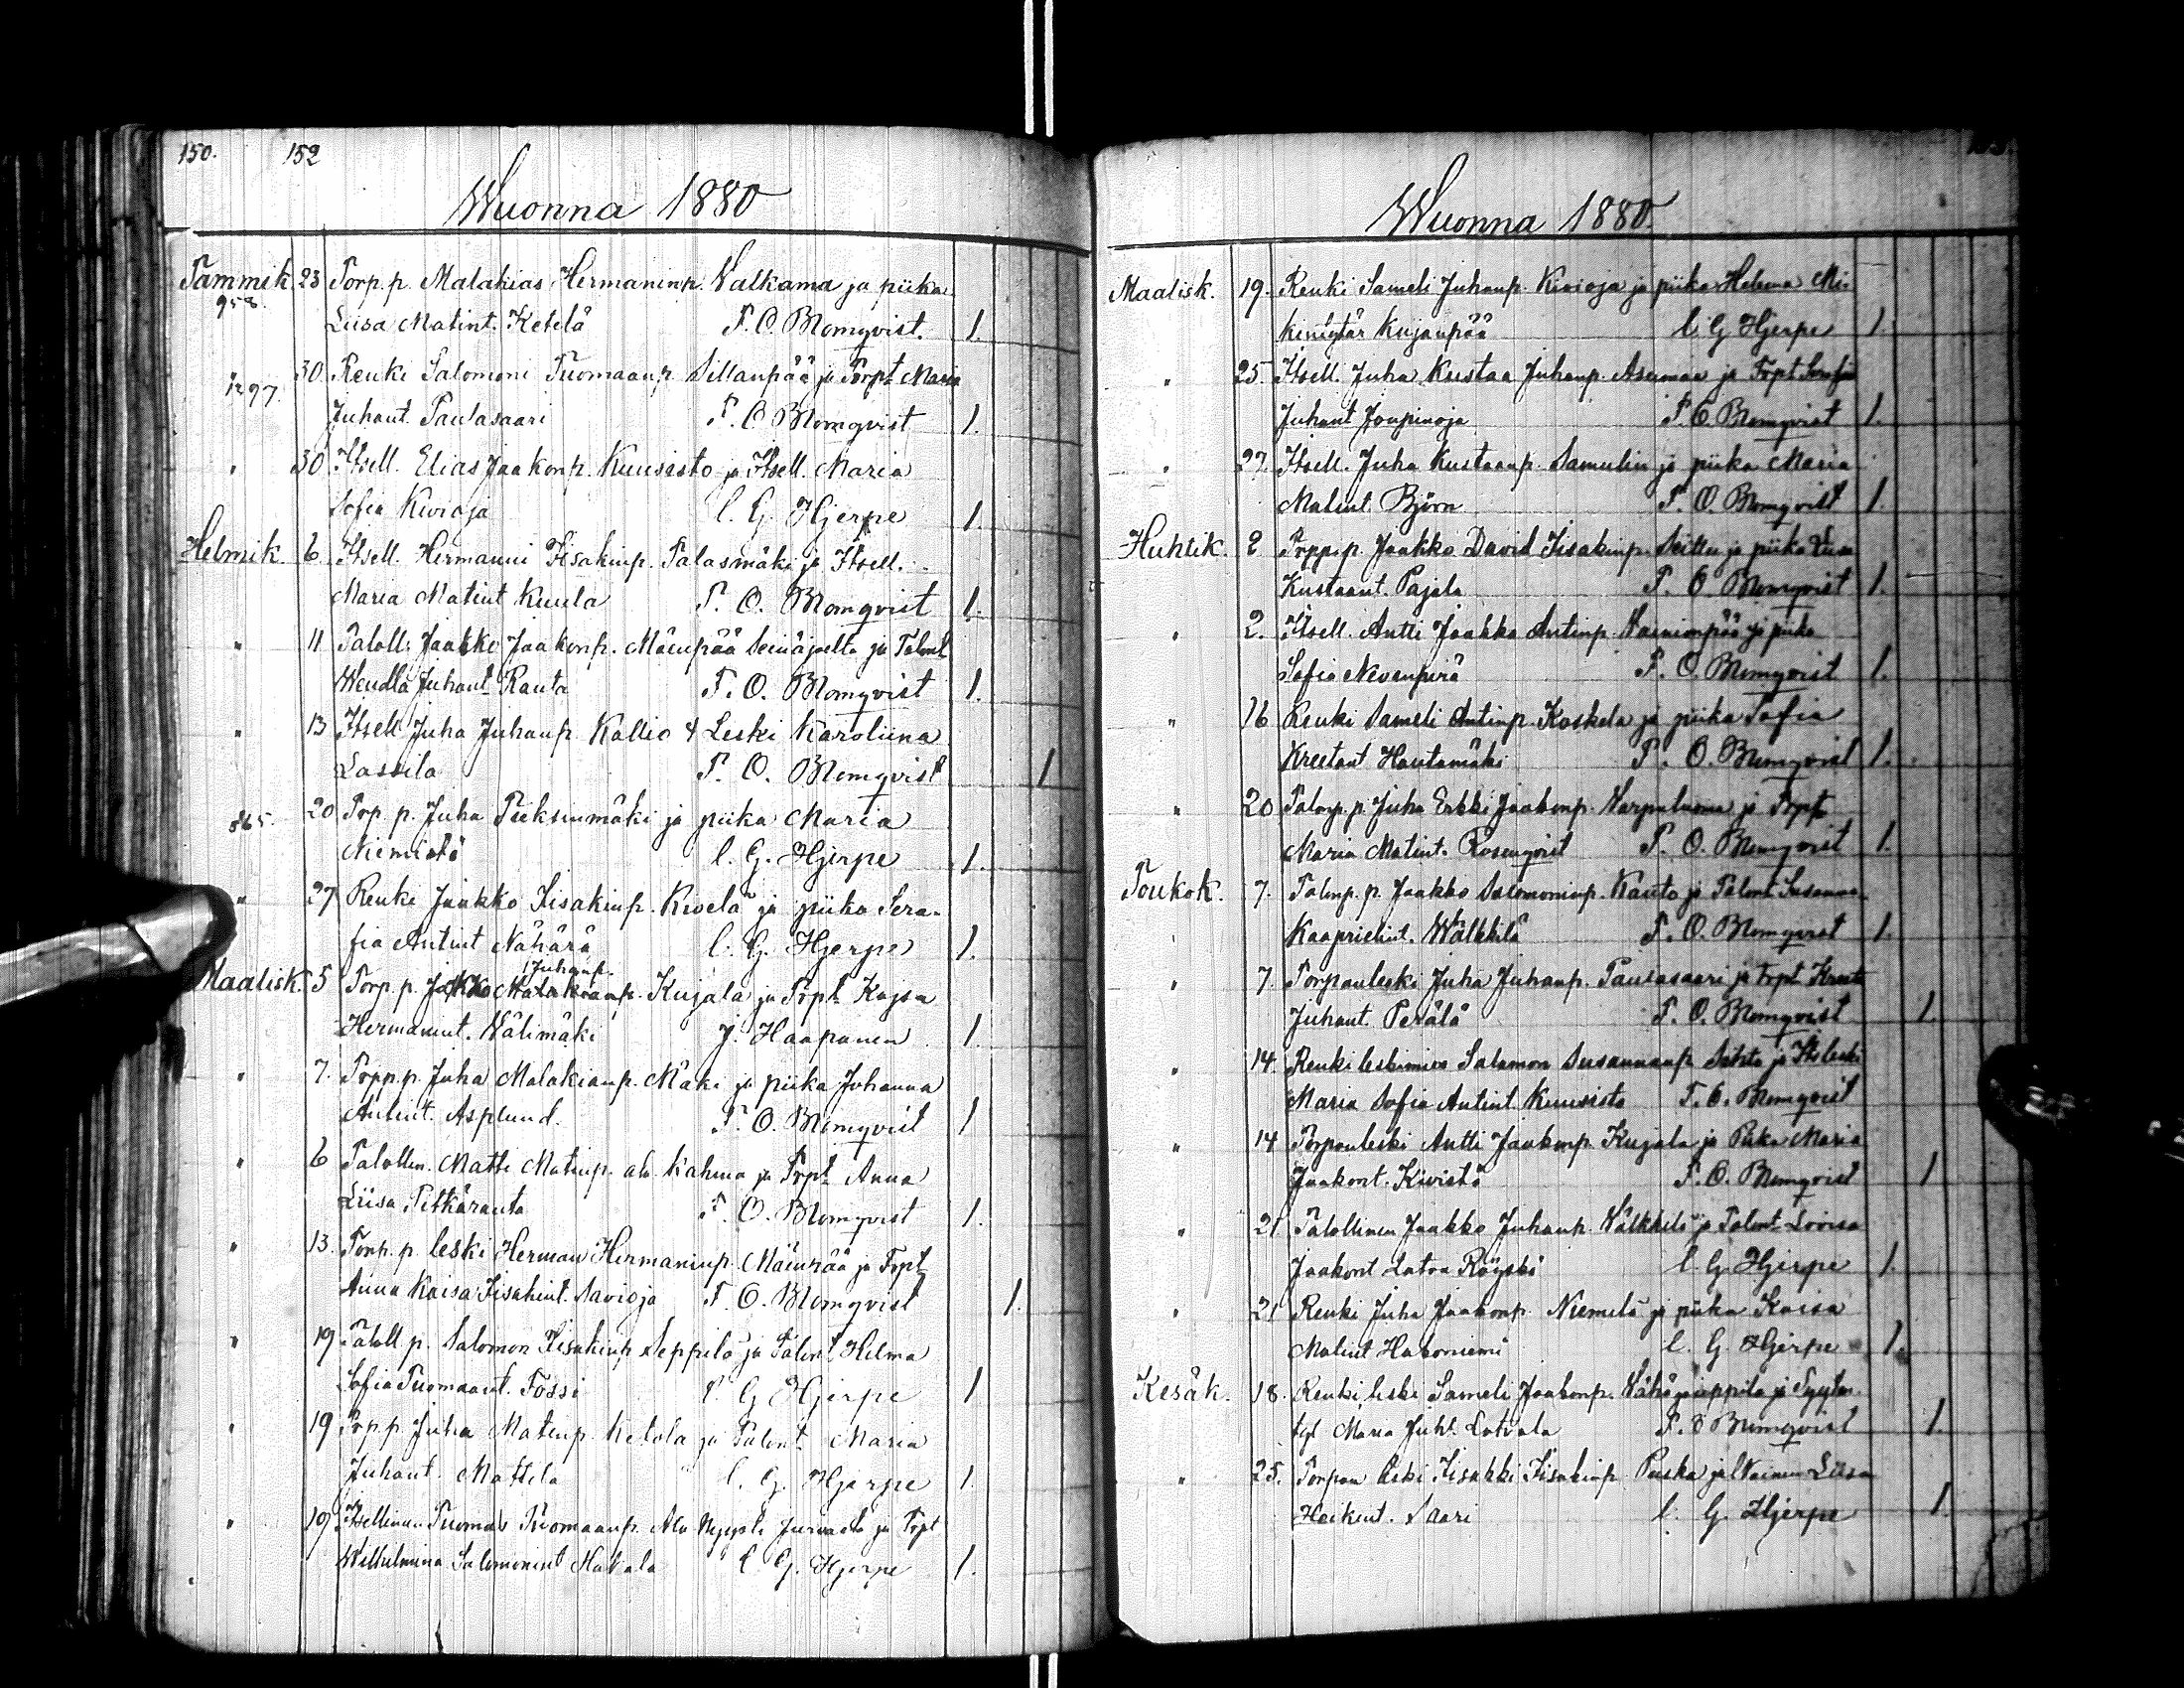 150. 152
Wuonna 1880
Tammik. 23 Torp. p. Malakias Hermaninp. Walkama ja piika
958. Liisa Matint. Ketelä T. O. Blomqvist. 1.
" 30 Renki Salomoni Tuomaanp. Sillanpää ja Torpt Maria
1297. Juhant. Paulasaari T. O Blomqvist 1.
" 30 Itsell. Elias Jaakonp. Kuusisto ja Itsell. Maria
Sofia Kivioja C. G. Hjerpe 1.
Helmik. 6 Itsell. Hermanni Iisakinp. Palasmäki ja Itsell.
Maria Matint Kuula T. O. Blomqvist 1.
" 11 Taloll. Jaakko Jaakonp. Mäenpää Seinäjoelta ja Talont
Wendla Juhant Ranta T. O. Blomqvist 1.
" 13 Itsell Juha Juhanp. Kallio & Leski Karoliina
Lassila T. O. Blomqvist 1
865. 20 Torp. p. Juha Pieksinmäki ja piika Maria
Niemistö C. G. Hjerpe 1.
" 27 Renki Jaakko Iisakinp. Kivelä ja piika Sera-
fia Antint Nähärä C. G. Hjerpe 1.
Juhanp.
Maalisk. 5 Torp. p. Jaakko Malakianp. Kujala ja Torpt Kajsa
Hermanint. Wälimäki J. Haapanen 1.
" 7. Torp p. Juha Malakianp. Mäki ja piika Johanna
Antint. Asplund. T. O. Blomqvist 1
" 6 Talollin. Matti Matinp. ala Kahma ja Torpt Anna
Liisa Pitkäranta T. O. Blomqvist 1.
" 13. Torp. p. leski Herman Hermaninp. Mäenpää ja Torpt
Anna Kaisa Iisakint. Savioja T. O. Blomqvist 1.
" 19 Taloll p. Salomon Iisakinp Seppilä ja Talont Hilma
Sofia Tuomaant. Fossi C. G Hjerpe 1
" 19 Torp p Juha Matinp Ketola ja Talont Maria
Juhant. Mattila C. G. Hjerpe 1.
" 19 Itsellinen Tuomas Tuomaanp. Ala Jurvasta ja Torpt
Wilhelmina Salomonint Hakala C G. Hjerpe 1.
Wuonna 1880
Maalisk. 19. Renki Sameli Juhanp. Kivioja ja piika Helena Mi-
kintytär Kujanpää C. G Hjerpe 1.
" 25. Itsell. Juha Kustaa Juhanp. Asumaa ja Torpt Serafia
Juhant Joupinoja T. O. Blomqvist 1.
" 27. Itsell. Juha Kustaanp. Samulin ja piika Maria
Matint Björn T. O. Blomqvist 1.
Huhtik. 2 Torp. p. Jaakko David Iisakinp. ja piika
Kustaant. Pajala T. O Blomqvist 1.
" 2. Itsell. Antti Jaakko Antinp. Wainionpää ja piika
Sofia Nevanperä T. O. Blomqvist 1.
" 16 Renki Sameli Antinp. Koskela ja piika Sofia
Kreetant Hautamäki T. O. Blomqvist 1.
" 20 Talonp. p. Juha Erkki Jaakonp. Warpuluoma ja Torpt
Maria Matint. Rosenqvist T. O. Blomqvist 1.
Toukok. 7. Talonp. p. Jaakko Salomoninp. Kanto ja Talont Susanna
Kaaprielint. Wälkkilä T. O. Blomqvist 1.
" 7. Torpanleski Juha Juhanp. Paulasaari ja Torpt Kreeta
Juhant. Perälä T. O. Blomqvist 1.
" 14. Renki leskimies Salomon Susannanp. ja Its leski
Maria Sofia Antint. Kuusisto T. O. Blomqvist
" 14 Torpanleski Antti Jaakonp. Kujala ja Piika Maria
Jaakont. Kivistö T. O. Blomqvist 1
" 21 Talollinen Jaakko Juhanp. Wälkkilä ja Talont. Lovisa
Jaakont Latva Röyskö C. G. Hjerpe 1.
" 21 Renki Juha Jaakonp. Niemelä ja piika Kaisa
Matint Hakoniemi C. G. Hjerpe 1.
Kesäk. 18. Renki, leski Sameli Jaakonp. Wähäjaappila ja
Maria Juht. Latvala T. O Blomqvist 1.
" 25. Torpan leski Iisakki Iisakinp. Puska ja Nainen Liisa
Heikint. Saari C. G. Hjerpe 1.